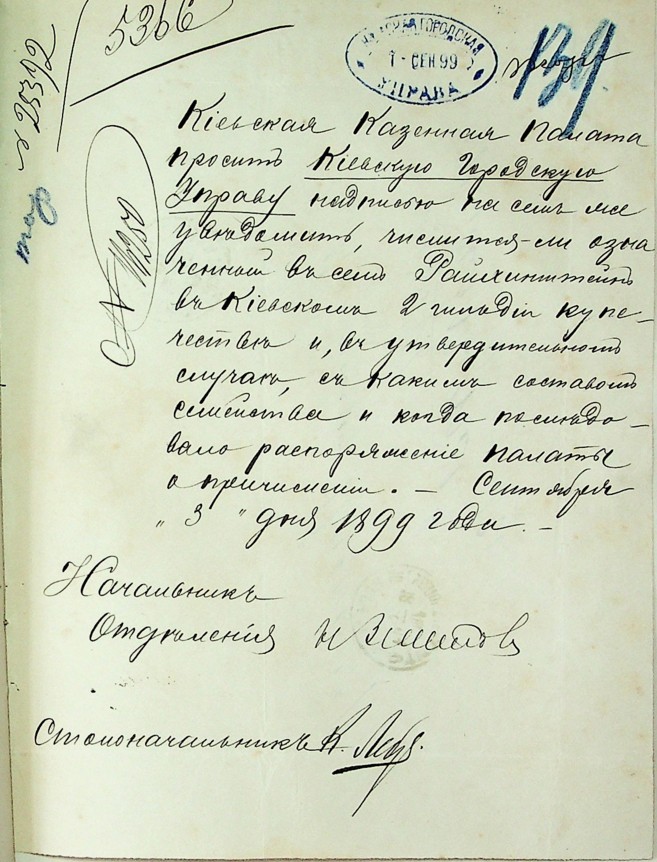 5366
КІЕВСКАЯ ГОРОДСКАЯ
СЕН 99
УПРАВА
Кіевская Казенная Палата
проситъ Кіевскую Городскую
Управу надписью на семъ же
увѣдомить, числится-ли озна
ченный въ семъ Файнхинштейнъ
въ Кіевскомъ 2 гильдіи купе-
чествѣ и, въ утвердительномъ
случаѣ, съ какимъ составомъ
семейства и когда послѣдо-
вало распоряженіе палаты
о причисленіи. – Сентября
„ 3 " дня 1899 года. –
Начальникъ
Отдѣленія
Столоначальникъ